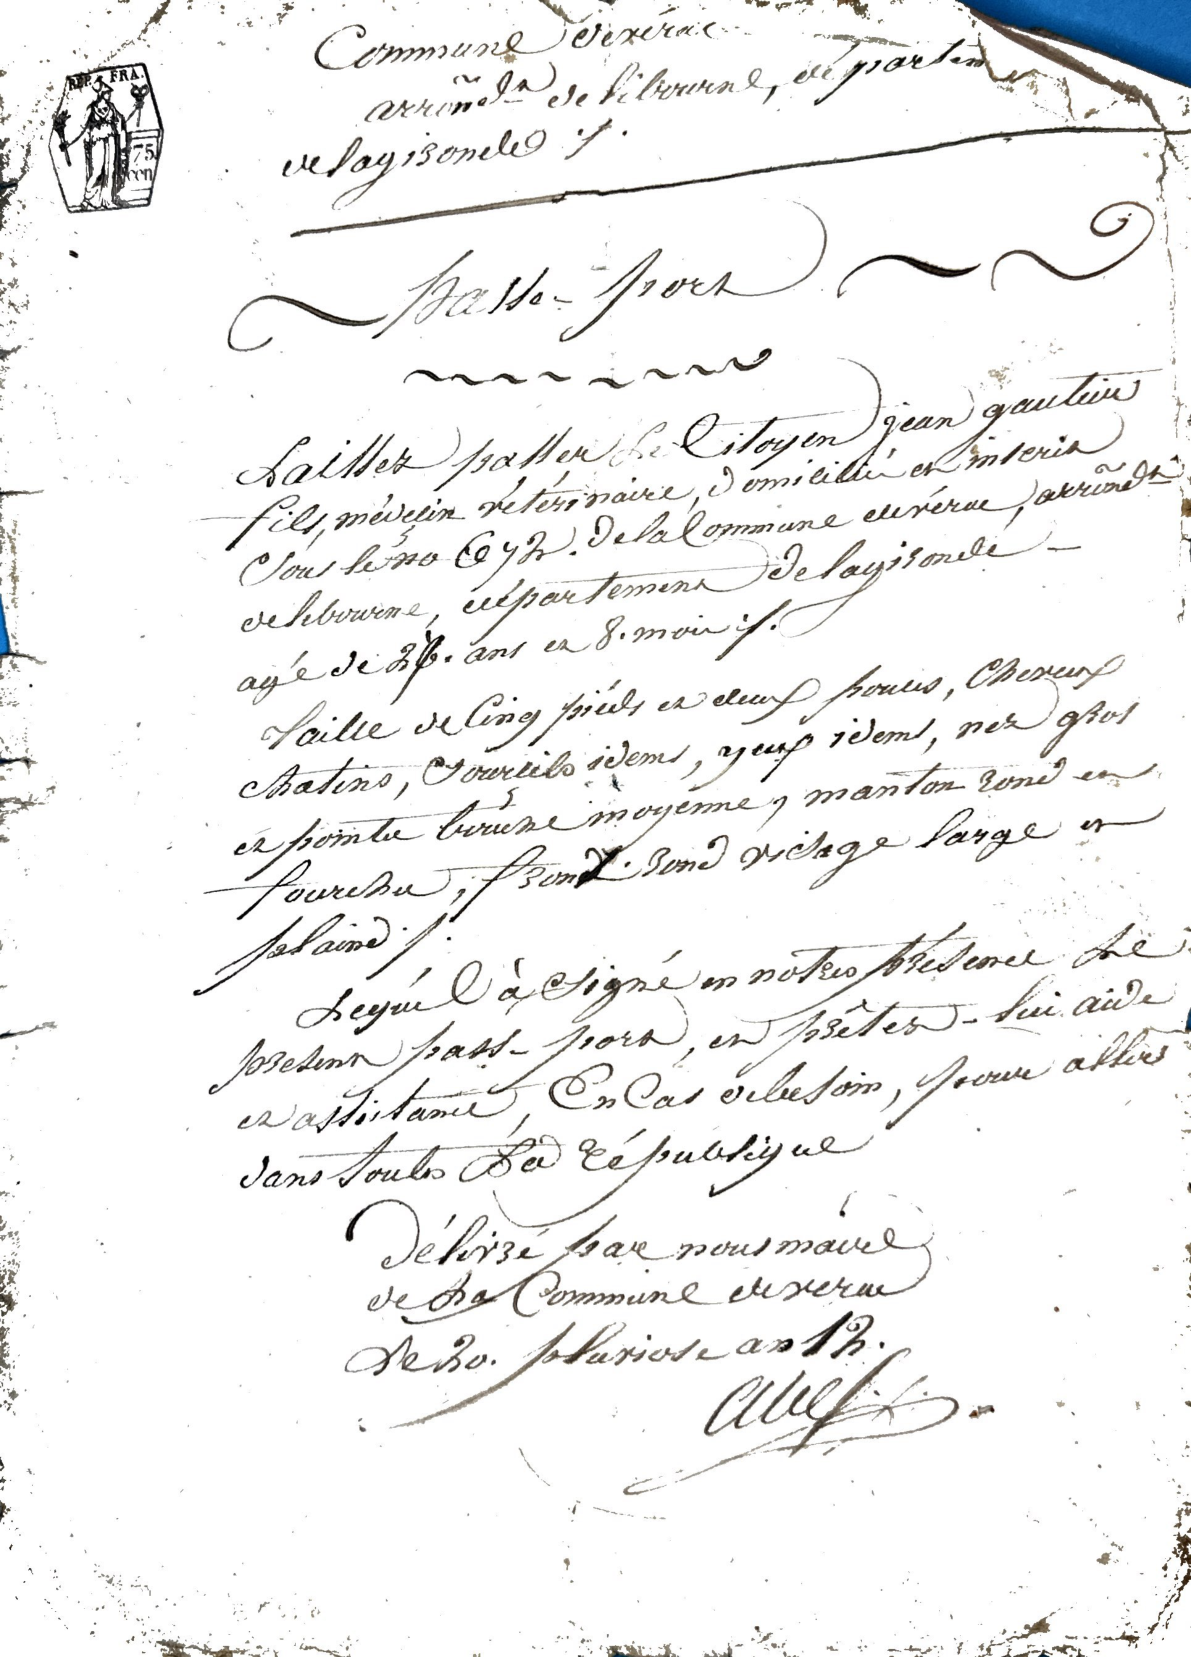 REP. FRA.
75
cen
Commune de vérac
arrond.t de libourne, départem
de la gironde ./.
Passe-port
Laissez passer Le Citoyen jean gautier
fils, médecin vétérinaire, domicilié et inscrit
sous le no 672. de la Commune de vérac, arrond.t
de libourne, département de la gironde –
agé de ans et 8. mois ./.
taille de Cinq piéds et deux pouces, Cheveux
chatins, Sourcils idems, yeux idems, nez gros
et pointu bouche moyenne, manton rond et
fourchu, frond. rond visage large et
plaind ./.
Lequel à signé en notre présence Le
présent pass-port, et prêter-lui aide
et assistance, En Cas de besoin, pour aller
dans toute La république
Délivré par nous maire
de La Commune de verac
Le 20. pluviose an 12.